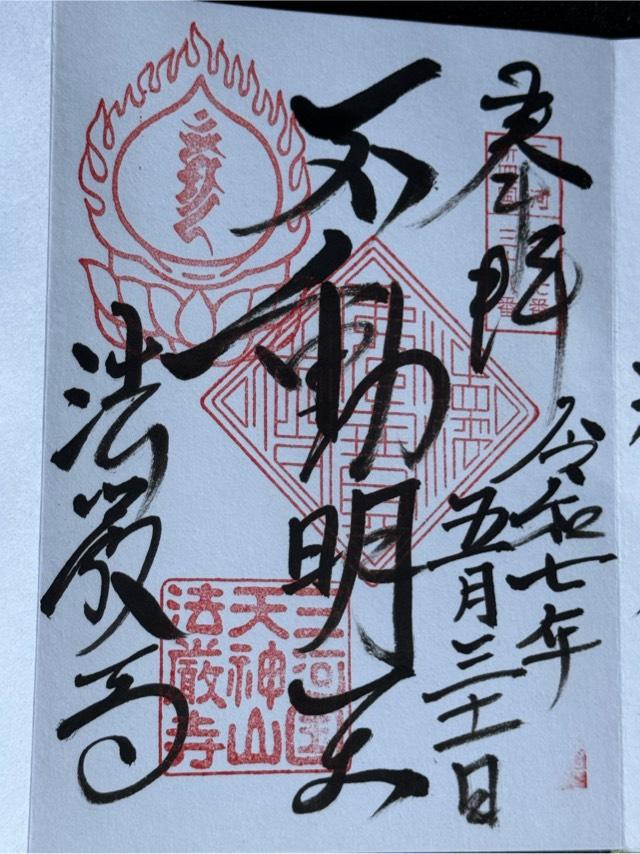 奉拝
令和七年
五月三十一日
不動明王
法厳寺
三河国
天神山
法厳寺